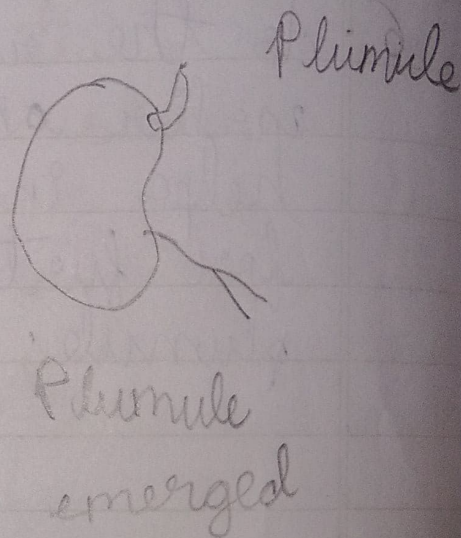 Plumule
Plumule
emerged